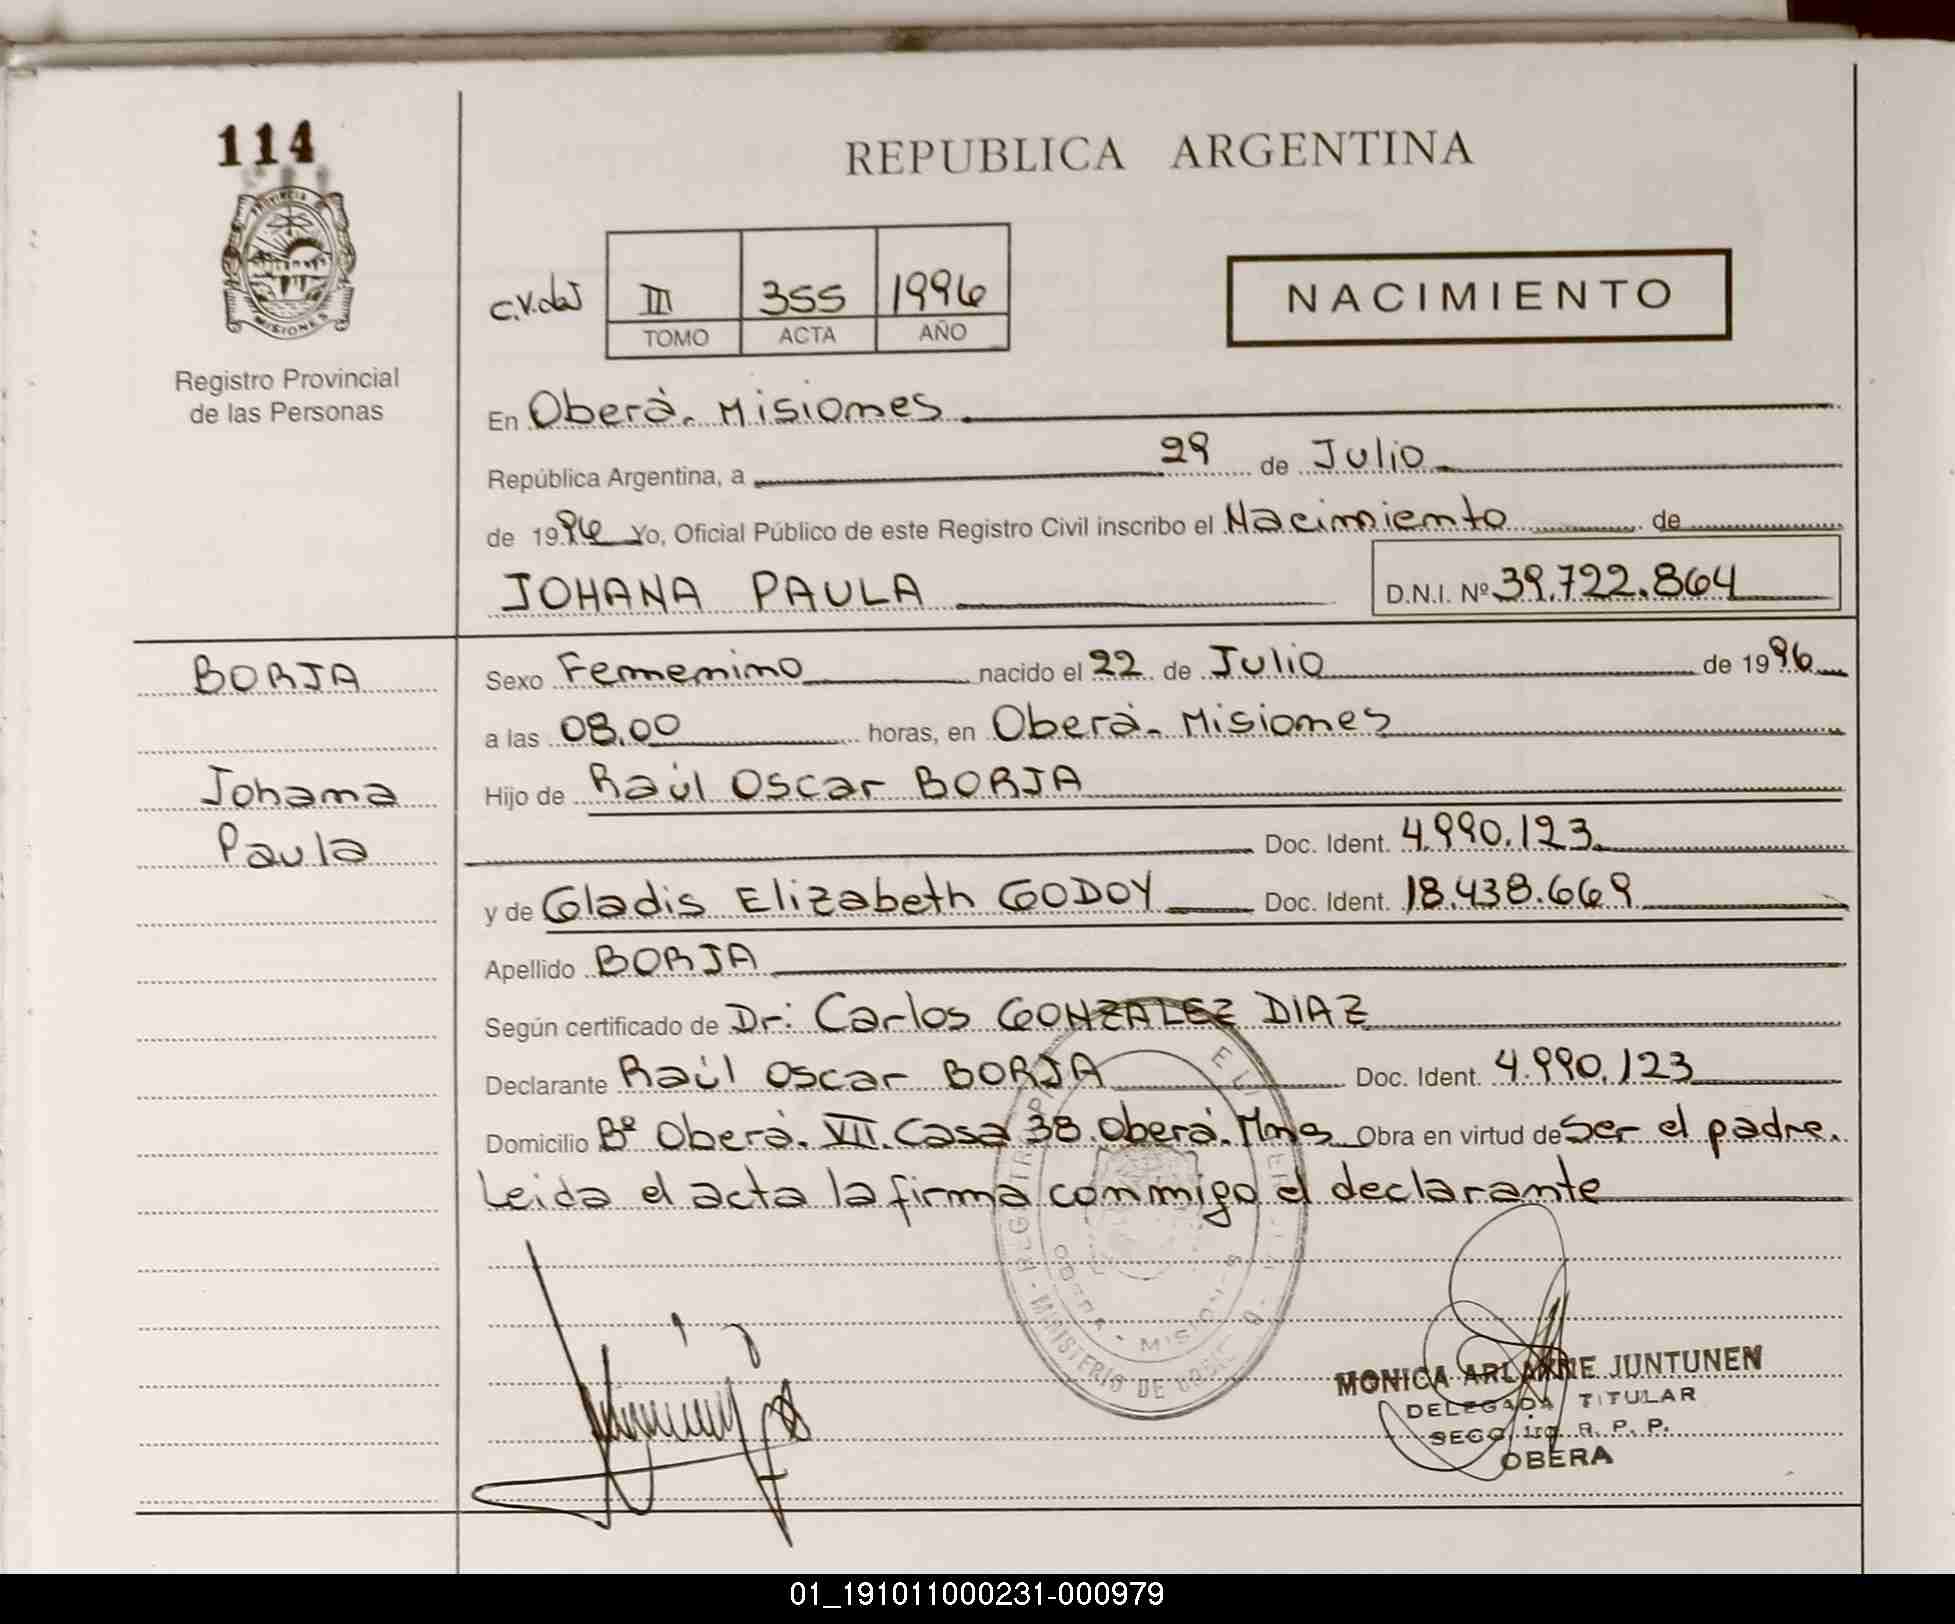 114
REPUBLICA ARGENTINA
PROVINCIA
MISIONES
Registro Provincial
de las Personas
III 355 1996
TOMO ACTA AÑO
NACIMIENTO
En Oberà. Misiones
República Argentina, a 29 de Julio
de 1996 Yo, Oficial Público de este Registro Civil inscribo el Nacimiento de
JOHANA PAULA D.N.I. Nº 39.722.864
BORJA
Johana
Paula
Sexo Femenino nacido el 22 de Julio de 1996
a las 08.00 horas, en Oberà. Misiones
Hijo de Raúl Oscar BORJA
Doc. Ident. 4.990.123
y de Gladis Elizabeth GODOY Doc. Ident. 18.438.669
Apellido BORJA
Según certificado de Dr: Carlos GONZALEZ DIAZ
Declarante Raúl Oscar BORJA Doc. Ident. 4.990.123
Domicilio Bº Oberà. VII. Casa 38. Oberà. Mnes Obra en virtud de ser el padre.
Leida el acta la firma conmigo el declarante
MINISTERIO DE
OBERA - MISIONES
MONICA ARLANNE JUNTUNEN
DELEGADA TITULAR
R. P. P.
OBERA
01_191011000231-000979